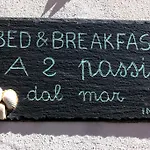 BED & BREAKFAS
A 2 passi
dal mar
IN